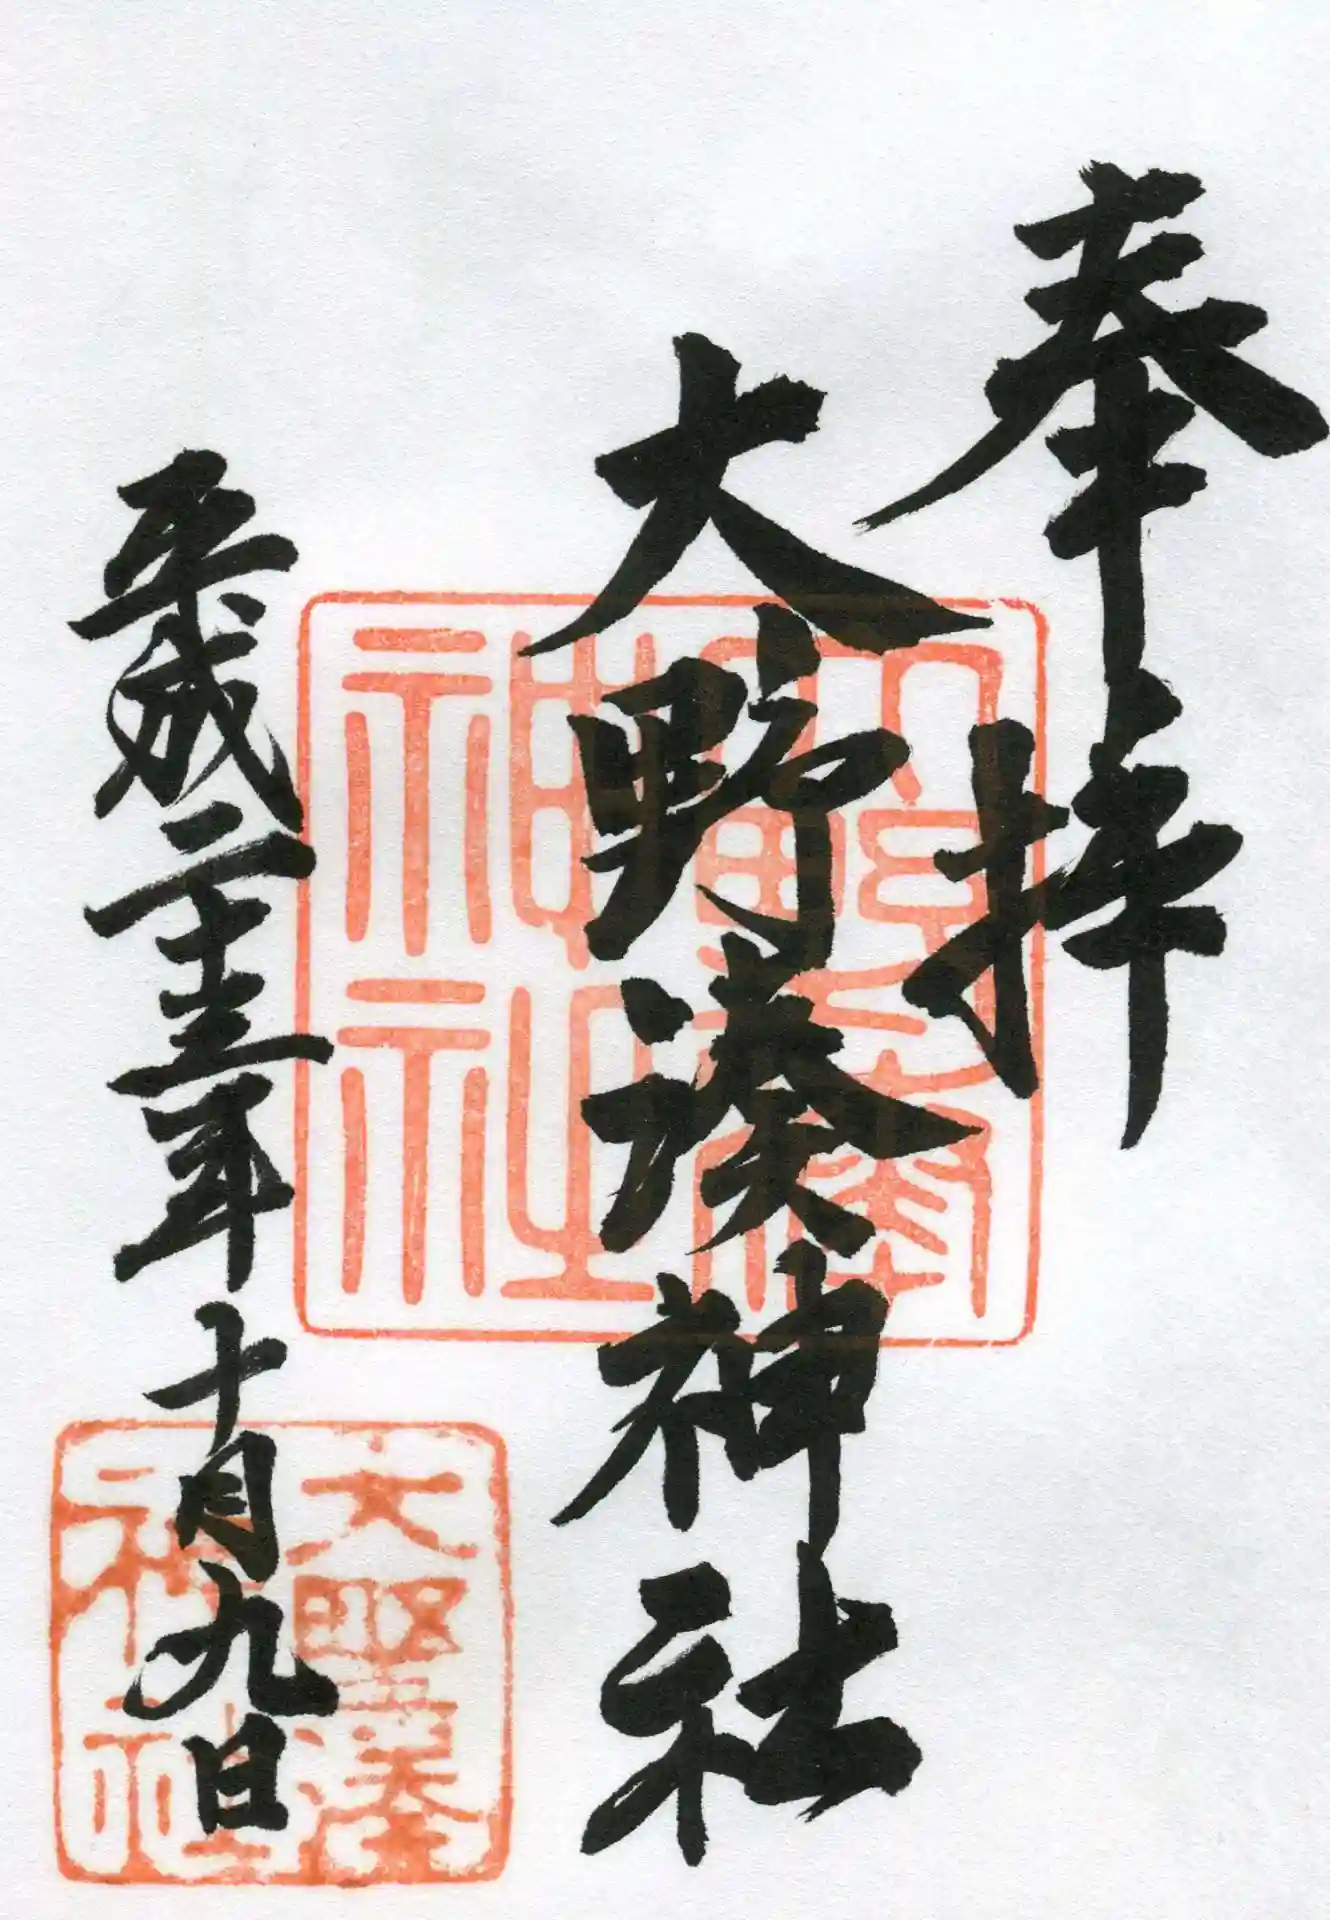 奉拝
大野湊神社
平成二十五年十月九日
大野湊神社
大野湊神社